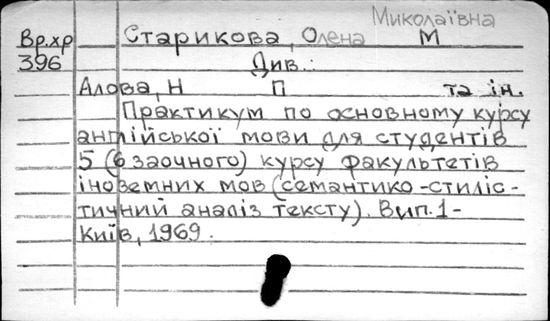 Миколаївна
Вр.хр Старикова, Олена М
396 Див.:
Алова, Н П та ін.
Практикум по основному курсу
англійської мови для студентів
5 (6 заочного) курсу факультетів
іноземних мов (семантико-стиліс-
тичний аналіз тексту). Вип. 1-
Київ, 1969.